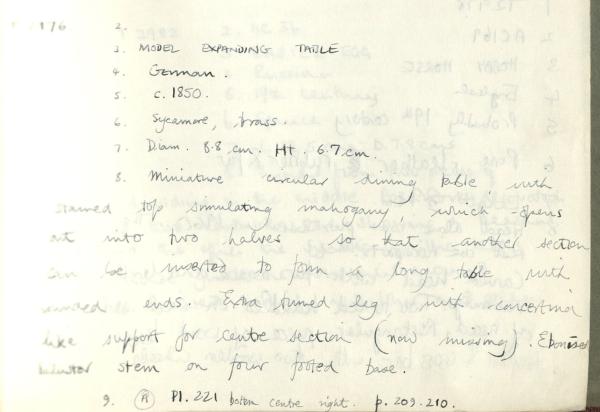 176
2.
3. MODEL EXPANDING TABLE
4. German.
5. c. 1850.
6. Sycamore, brass.
7. Diam. 8.8 cm. Ht. 6.7 cm.
8. Miniature circular dining table, with
stained top simulating mahogany, which opens
out into two halves so that another section
can be inserted to form a long table with
rounded ends. Extra turned leg with concertina
like support for centre section (now missing). Ebonised
baluster stem on four footed base.
9. (A) Pl. 221 bottom centre right. p. 209. 210.